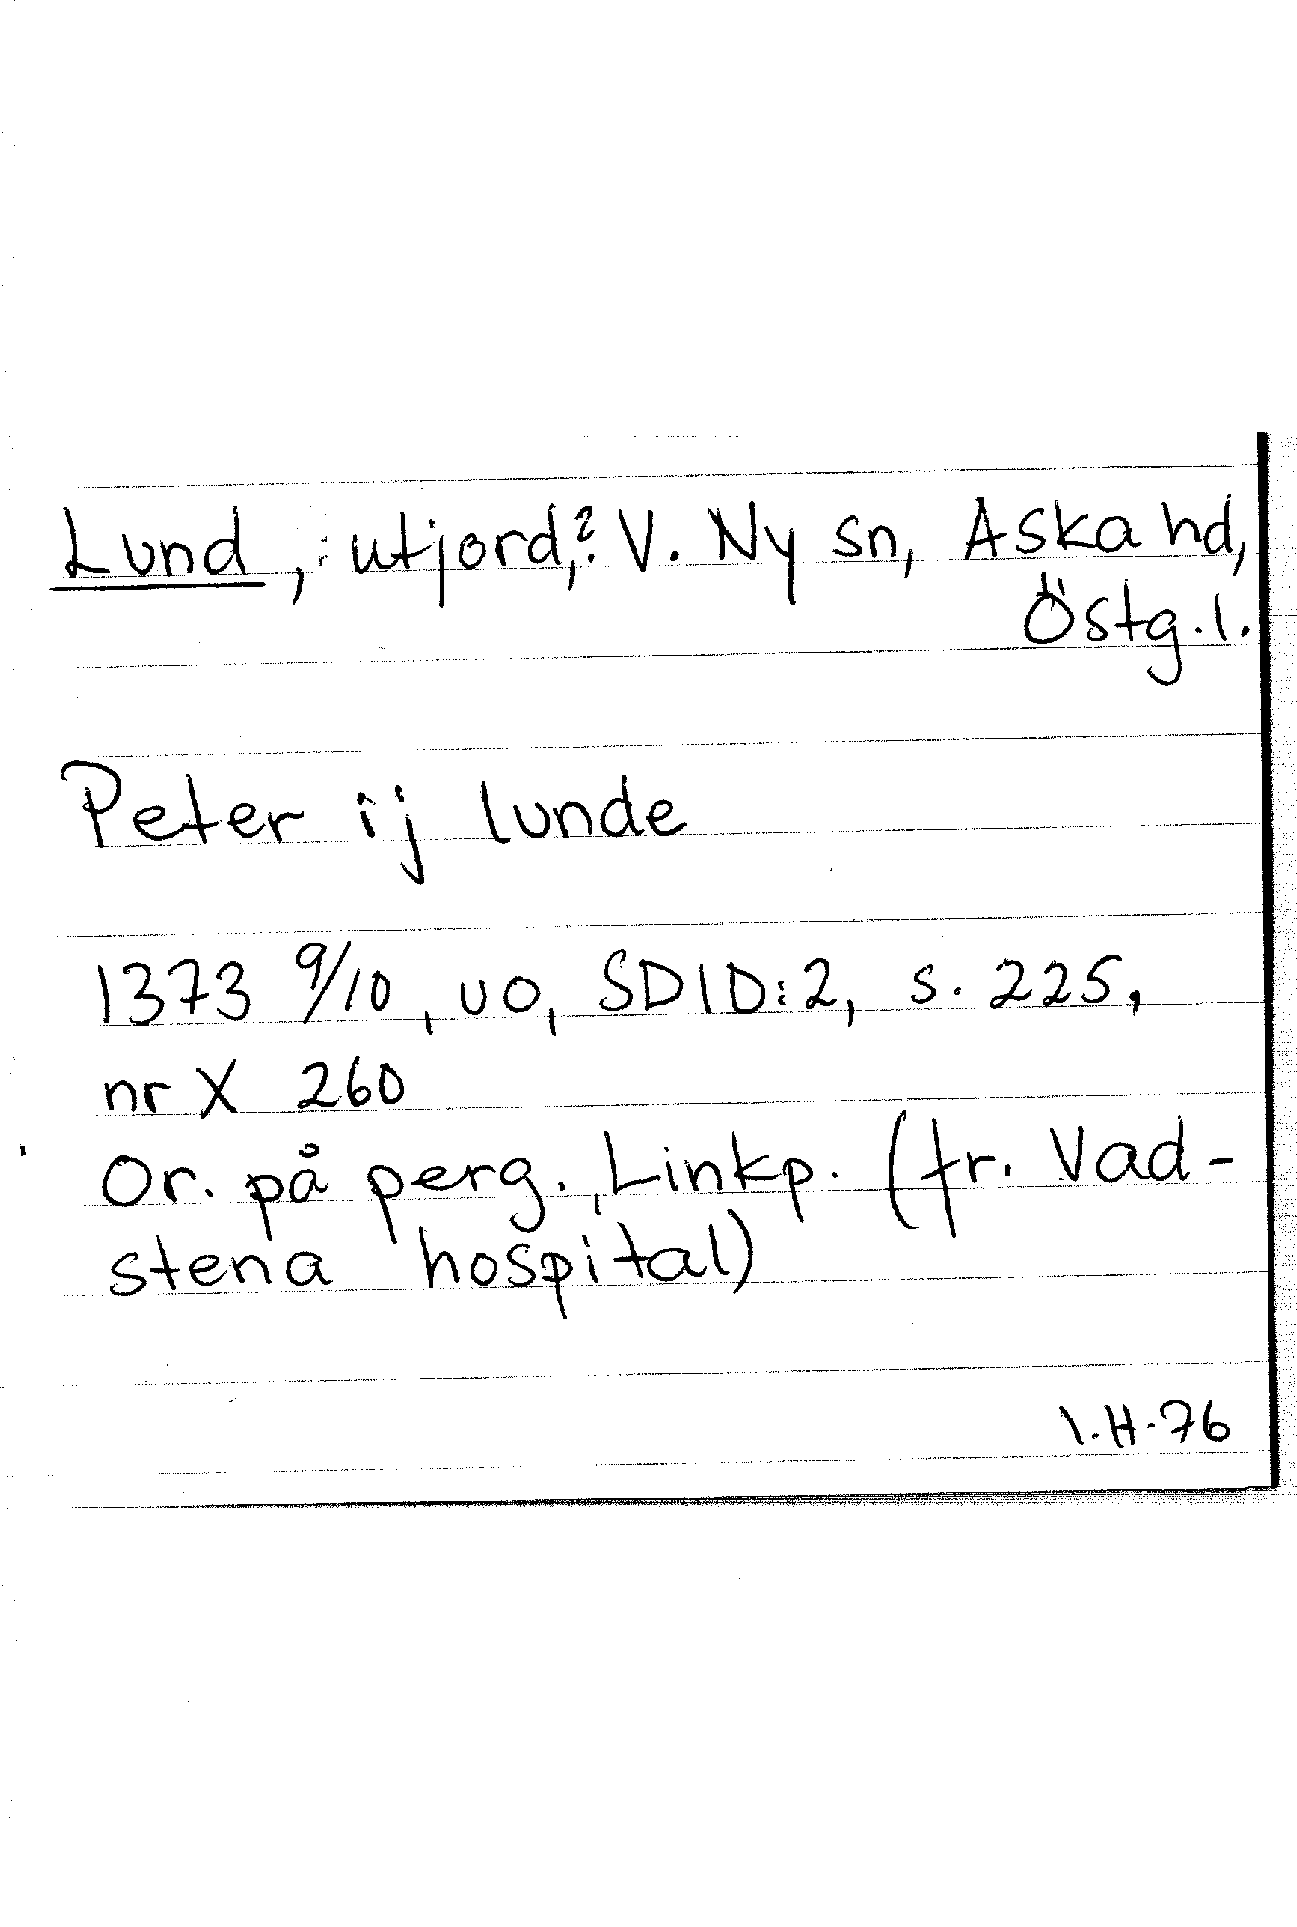 Lund, utjord,? V. Ny sn, Aska hd,
Östg.l.
Peter ij lunde
1373 9/10, uo, SD ID:2, s. 225,
nr X 260
Or. på perg., Linkp. (fr. Vad-
stena hospital)
I.H-76